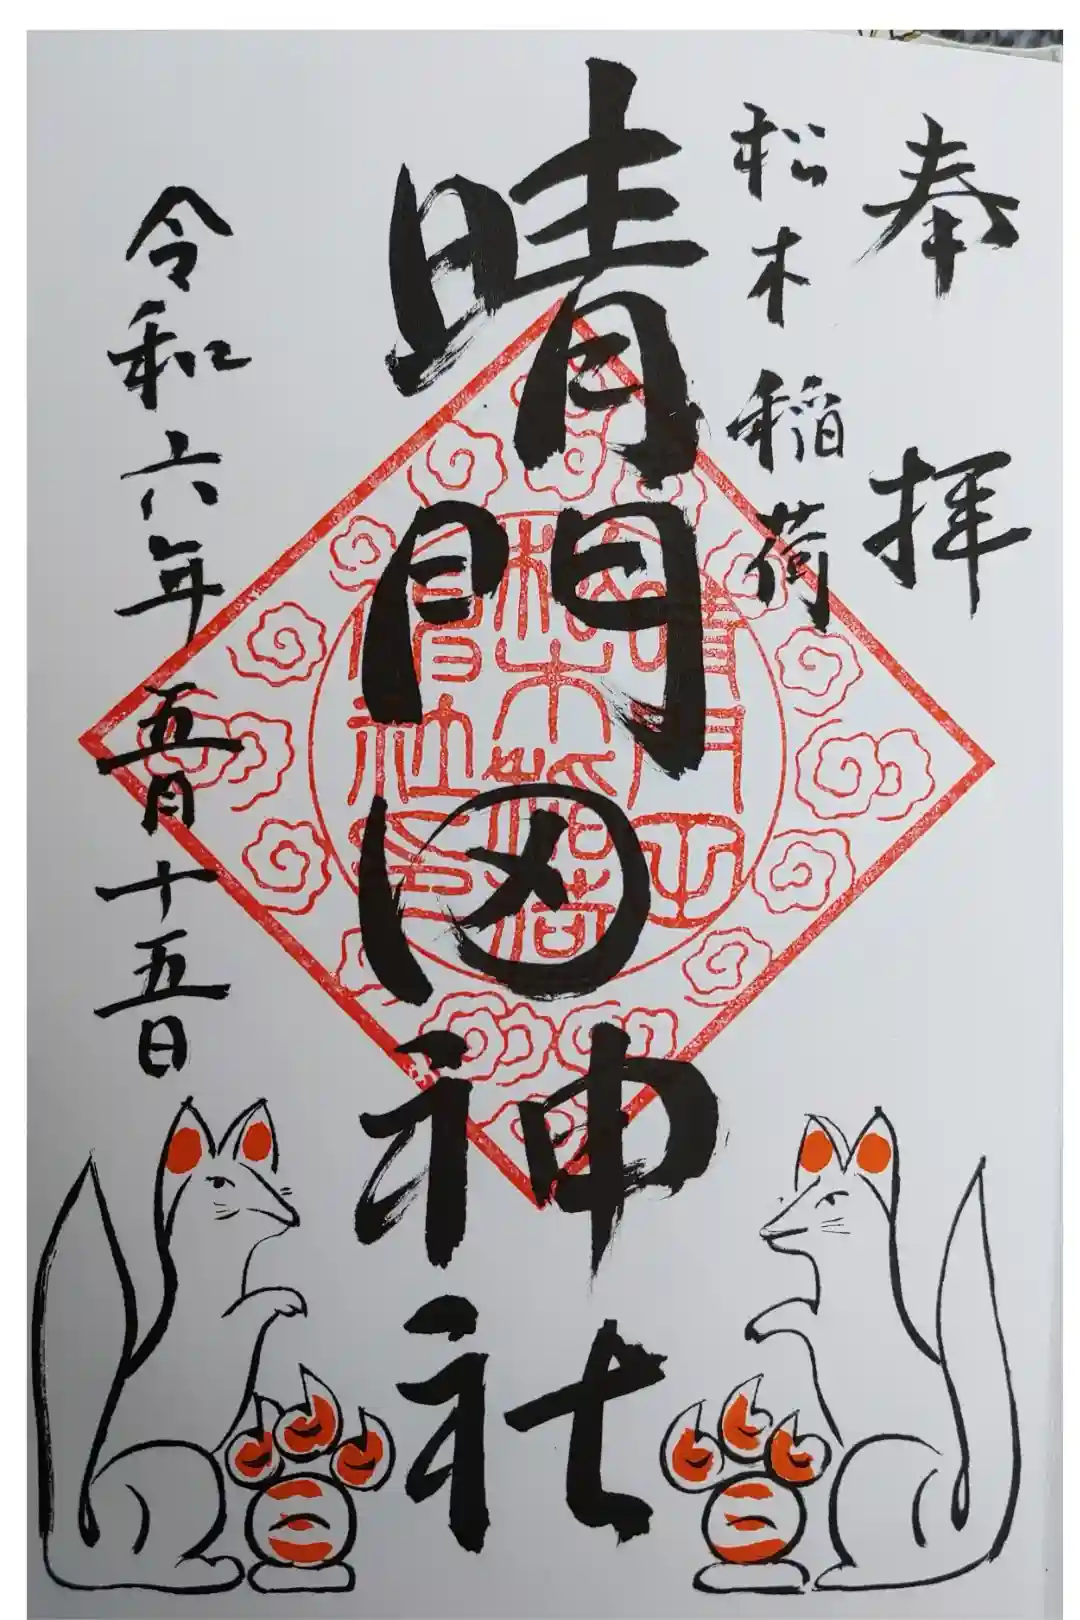 奉拝
松木稲荷
晴門田神社
令和六年五月十五日
晴門田
松木稲荷